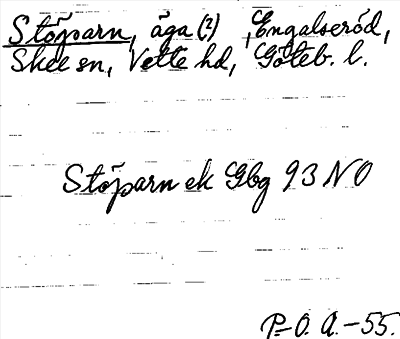 Stöparn, äga (?), Engalseröd,
Skee sn, Vette hd, Göteb. l.
Stöparn ek Gbg 93 NO
P-O. A. -55.